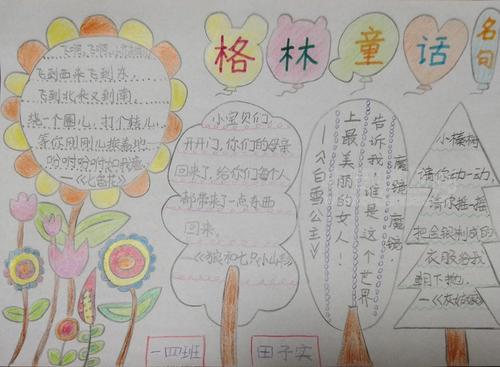 格林童话
名句
飞啊,飞啊,小花瓣儿
飞到西来飞到东,
飞到北来又到南。
绕一个圈儿,打个转儿
等你刚刚儿挨着地
吩咐吩咐如我意。
——《七色花》
小宝贝们
开开门,你们的母亲
回来了,给你们每个人
都带来了一点东西
回来。
——《狼和七只小山羊》
魔镜,魔镜,
告诉我,谁是这个世界
上最美丽的女人!
《白雪公主》
小榛树
请你动一动
请你摇一摇
把金银制成的
衣服给我
扔下地。
——《灰姑娘》
一四班
田子实